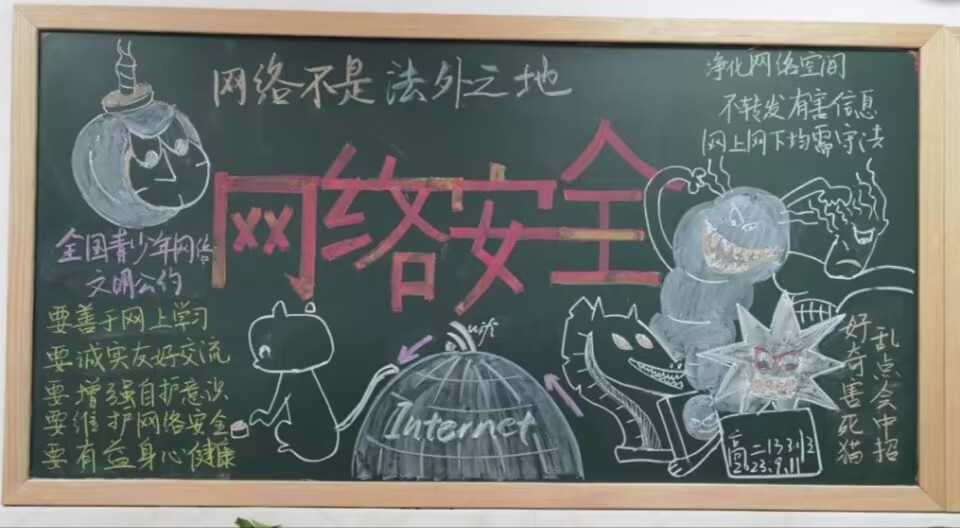 网络不是法外之地
净化网络空间
不转发有害信息
网上网下均需守法
网络安全
全国青少年网络
文明公约
要善于网上学习
要诚实友好交流
要增强自护意识
要维护网络安全
要有益身心健康
Internet
乱点会中招
好奇害死猫
23.9.11